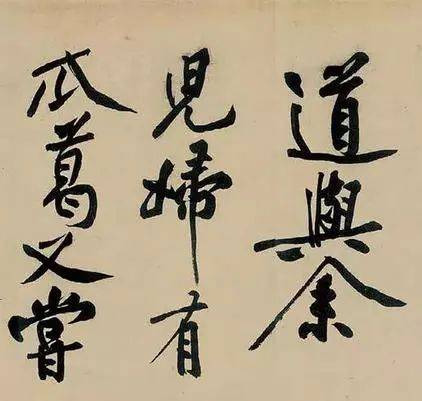 道與余
兒婦有
瓜葛又嘗